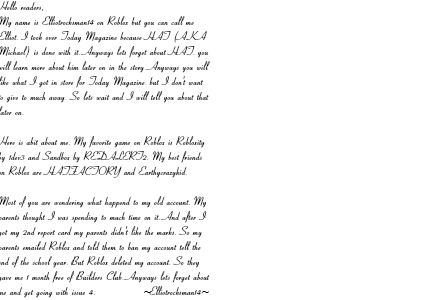 Hello readers,
My name is Elliotrocksman14 on Roblox but you can call me
Elliot. I took over Today Magazine because HAT (A.K.A
Michael) is done with it. Anyways lets forget about HAT you
will learn more about him later on in the story. Anyways you will
like what I got in store for Today Magazine. but I don't want
to give to much away. So lets wait and I will tell you about that
later on.
Here is abit about me. My favorite game on Roblox is Robloxity
by 1dev3 and Sandbox by REDALERT2. My best friends
on Roblox are HATFACTORY and Earthycrazykid.
Most of you are wondering what happend to my old account. My
parents thought I was spending to much time on it. And after I
got my 2nd report card my parents didn't like the marks. So my
parents emailed Roblox and told them to ban my account tell the
end of the school year. But Roblox deleted my account. So they
gave me 1 month free of Builders Club. Anyways lets forget about
me and get going with issue 4. ~Elliotrocksman14~